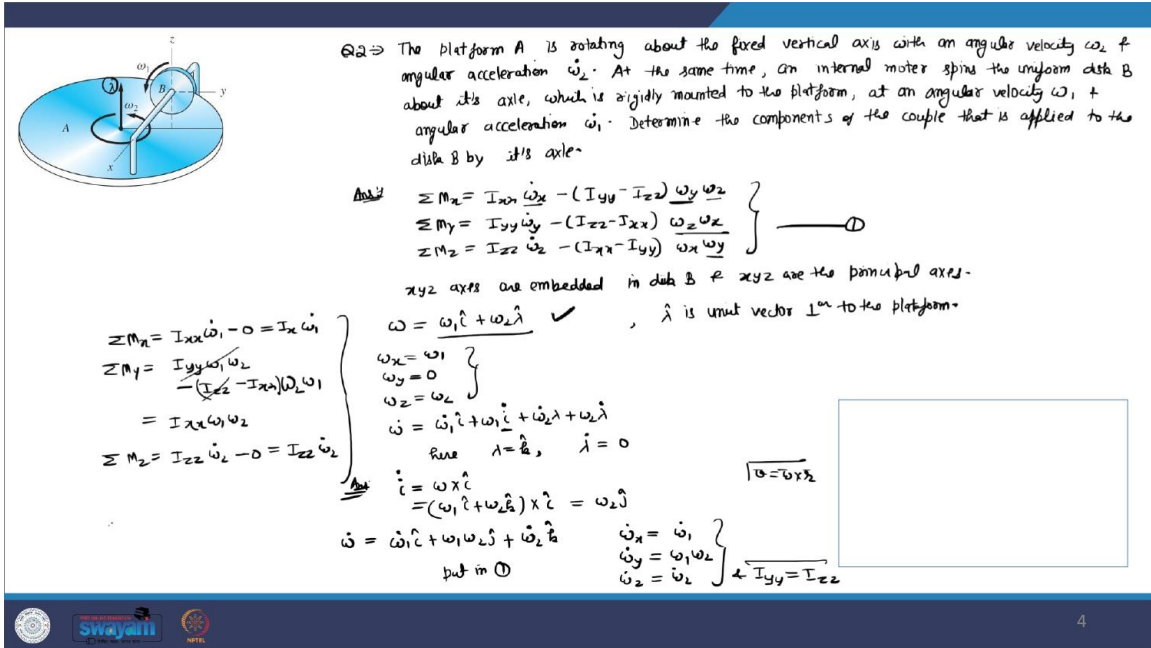 Q2⇒ The platform A is rotating about the fixed vertical axis with an angular velocity ω₂ &
angular acceleration ω̇₂. At the same time, an internal moter spins the uniform disk B
about it's axle, which is rigidly mounted to the platform, at an angular velocity ω₁ +
angular acceleration ω̇₁. Determine the components of the couple that is applied to the
disk B by it's axle.
z
ω₁
λ
B
y
ω₂
A
x
Ans⇒
ΣMx = Ixx ω̇x - (Iyy - Izz) ωy ωz
ΣMy = Iyy ω̇y - (Izz - Ixx) ωz ωx
ΣMz = Izz ω̇z - (Ixx - Iyy) ωx ωy
①
xyz axes are embedded in disk B & xyz are the principal axes.
ω = ω₁î + ω₂λ̂ ✓ , λ̂ is unit vector ⊥ar to the platform.
ωx = ω₁
ωy = 0
ωz = ω₂
ω̇ = ω̇₁î + ω₁i̇ + ω̇₂λ + ω₂λ̇
here λ = k̂, λ̇ = 0
i̇ = ω × î
= (ω₁î + ω₂k̂) × î = ω₂ĵ
ω̇ = ω̇₁î + ω₁ω₂ĵ + ω̇₂k̂
put in ①
ω̇x = ω̇₁
ω̇y = ω₁ω₂
ω̇z = ω̇₂
& Iyy = Izz
ΣMx = Ixx ω̇₁ - 0 = Ix ω̇₁
ΣMy = Iyy ω₁ω₂
-(Izz - Ixx) ω₂ω₁
= Ixx ω₁ω₂
ΣMz = Izz ω̇₂ - 0 = Izz ω̇₂
Ans
swayam
NPTEL
4